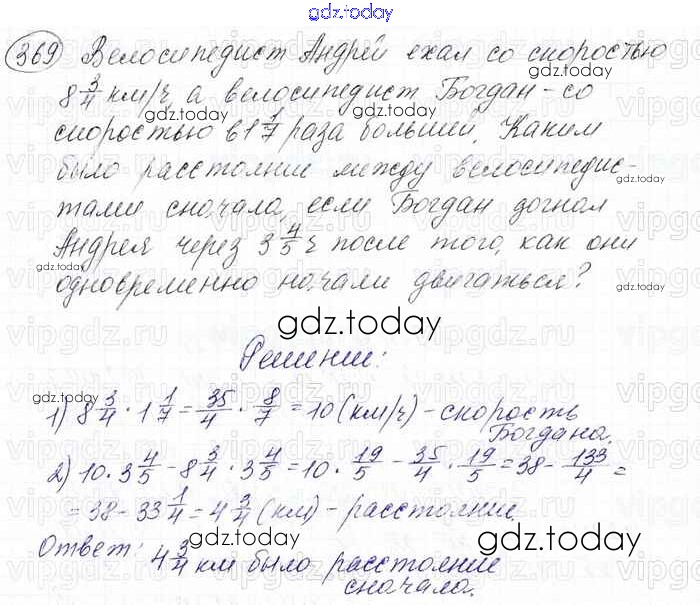 gdz.today
369 Велосипедист Андрей ехал со скоростью
8 3/4 км/ч, а велосипедист Богдан - со
скоростью в 1 1/7 раза большей. Каким
было расстояние между велосипедис-
тами сначала, если Богдан догнал
Андрея через 3 4/5 ч после того, как они
одновременно начали двигаться?
gdz.today
Решение:
1) 8 3/4 · 1 1/7 = 35/4 · 8/7 = 10 (км/ч) - скорость
Богдана.
2) 10 · 3 4/5 - 8 3/4 · 3 4/5 = 10 · 19/5 - 35/4 · 19/5 = 38 - 133/4 =
= 38 - 33 1/4 = 4 3/4 (км) - расстояние.
Ответ: 4 3/4 км было расстояние
сначала.